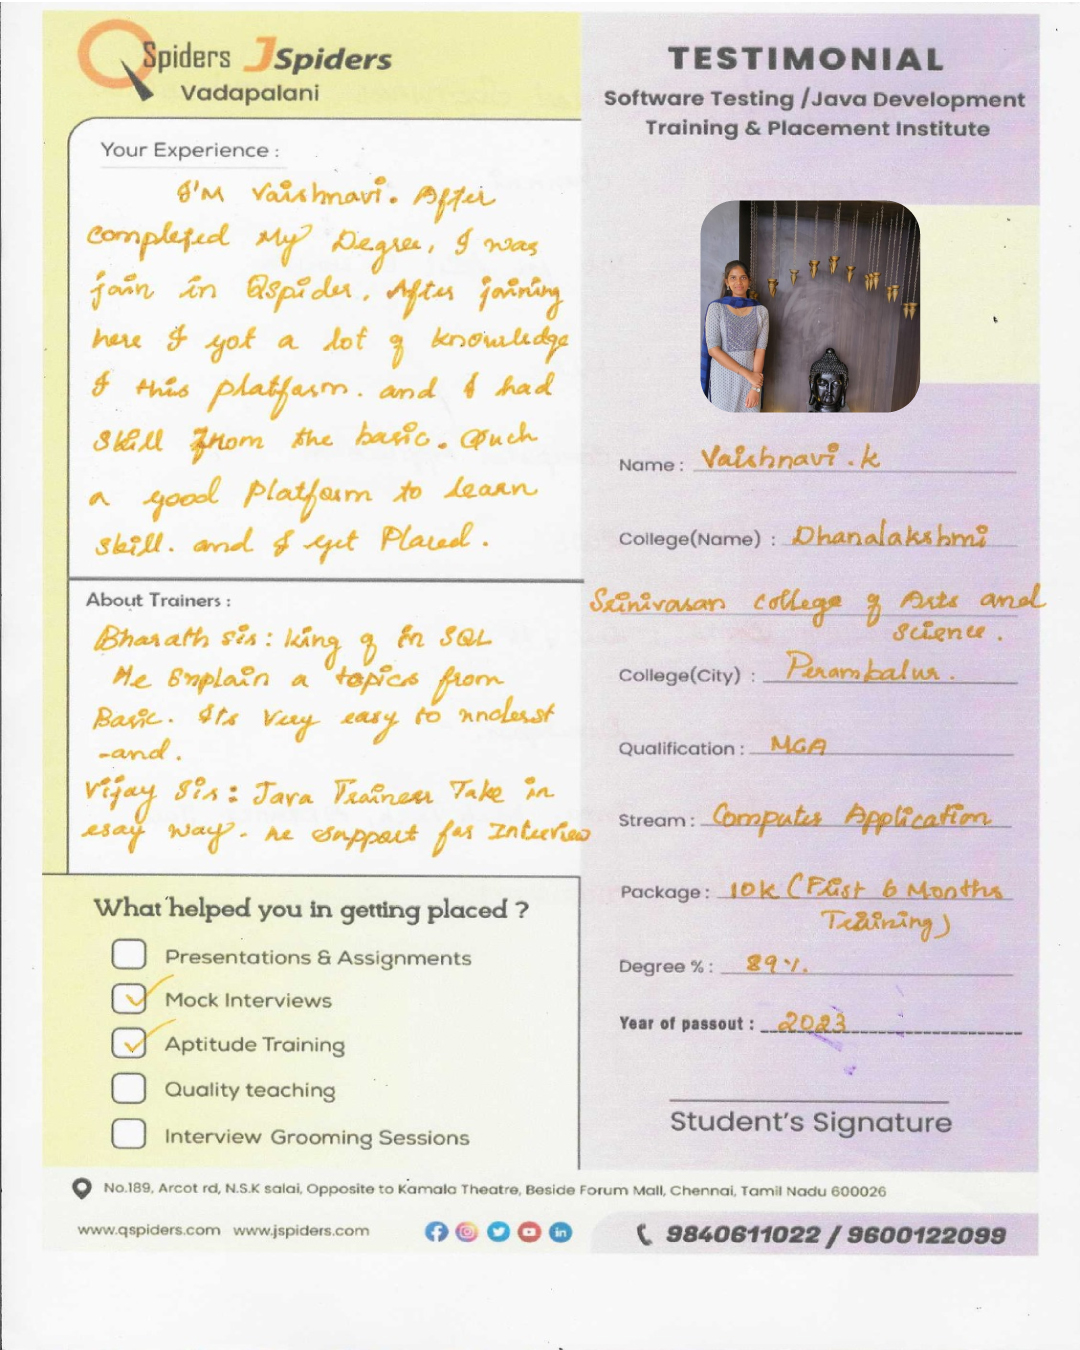 QSpiders JSpiders
Vadapalani
Your Experience :
I'M Vaishnavi. After
completed My Degree, I was
join in Qspider. After joining
here I got a lot of knowledge
I this platform. and I had
skill from the basic. Such
a good Platform to learn
skill. and I get Placed.
About Trainers :
Bharath sir : king of in SQL
He Explain a topics from
Basic. Its Very easy to underst
-and.
Vijay Sir : Java Trainer Take in
esay way. he support for Interview
What helped you in getting placed ?
Presentations & Assignments
Mock Interviews
Aptitude Training
Quality teaching
Interview Grooming Sessions
TESTIMONIAL
Software Testing /Java Development
Training & Placement Institute
Name : Vaishnavi .k
College(Name) : Dhanalakshmi
Srinivasan college of Arts and
Science .
College(City) : Perambalur .
Qualification : MCA
Stream : Computer Application
Package : 10k (First 6 Months
Training)
Degree % : 89%.
Year of passout : 2023
Student's Signature
No.189, Arcot rd, N.S.K salai, Opposite to Kamala Theatre, Beside Forum Mall, Chennai, Tamil Nadu 600026
www.qspiders.com www.jspiders.com
9840611022 / 9600122099